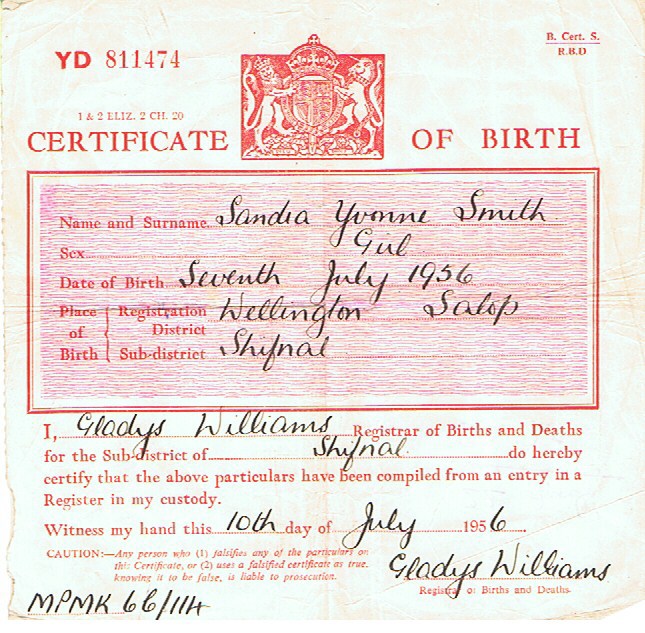 B. Cert. S.
R.B.D
YD 811474
1 & 2 ELIZ. 2 CH. 20
CERTIFICATE OF BIRTH
Name and Surname Sandra Yvonne Smith
Sex Girl
Date of Birth Seventh July 1956
Place of Birth { Registration District Wellington Salop
Sub-district Shifnal
I, Gladys Williams Registrar of Births and Deaths
for the Sub-district of Shifnal do hereby
certify that the above particulars have been compiled from an entry in a
Register in my custody.
Witness my hand this 10th day of July 1956.
CAUTION:—Any person who (1) falsifies any of the particulars on
this Certificate, or (2) uses a falsified certificate as true,
knowing it to be false, is liable to prosecution.
Gladys Williams
Registrar of Births and Deaths.
MPMK 66/114